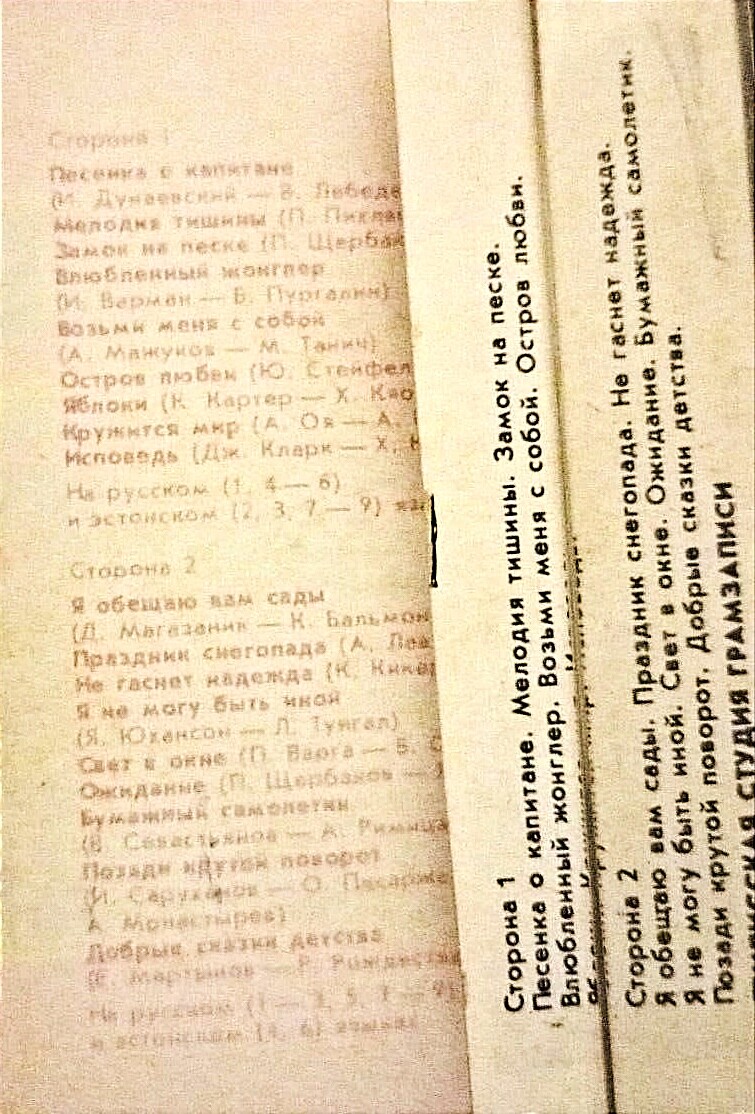 Сторона 1
Песенка о капитане
(И. Дунаевский — В. Лебеде
Мелодия тишины (П.
Замок на песке (П. Щербак
Влюбленный жонглер
(И. Верман — Б. Пургалин)
Возьми меня с собой
(А. Мажуков — М. Танич)
Остров любви (Ю.
Яблоки (К. Картер — Х.
Кружится мир (А. Оя — А.
Исповедь (Дж. Кларк — Х.
На русском (1, 4 — 6)
и эстонском (2, 3, 7 — 9)
Сторона 2
Я обещаю вам сады
(Д. Магазаник — К. Бальмон
Праздник снегопада (А.
Не гаснет надежда (К.
Я не могу быть иной
(Я. Юхансон — Л. Тунгал)
Свет в окне (П. Варга — Б.
Ожидание (П. Щербаков —
Бумажный самолетик
(В. Севастьянов — А. Римица
Позади крутой поворот
(И. Саруханов — О. Писарже
А. Монастырев)
Добрые сказки детства
(Е. Мартынов — Р. Рождеств
На русском (1 — 3, 5, 7 — 9)
и эстонском (4, 6) языках
Сторона 1
Песенка о капитане. Мелодия тишины. Замок на песке.
Влюбленный жонглер. Возьми меня с собой. Остров любви.
Сторона 2
Я обещаю вам сады. Праздник снегопада. Не гаснет надежда.
Я не могу быть иной. Свет в окне. Ожидание. Бумажный самолетик.
Позади крутой поворот. Добрые сказки детства.
СТУДИЯ ГРАМЗАПИСИ